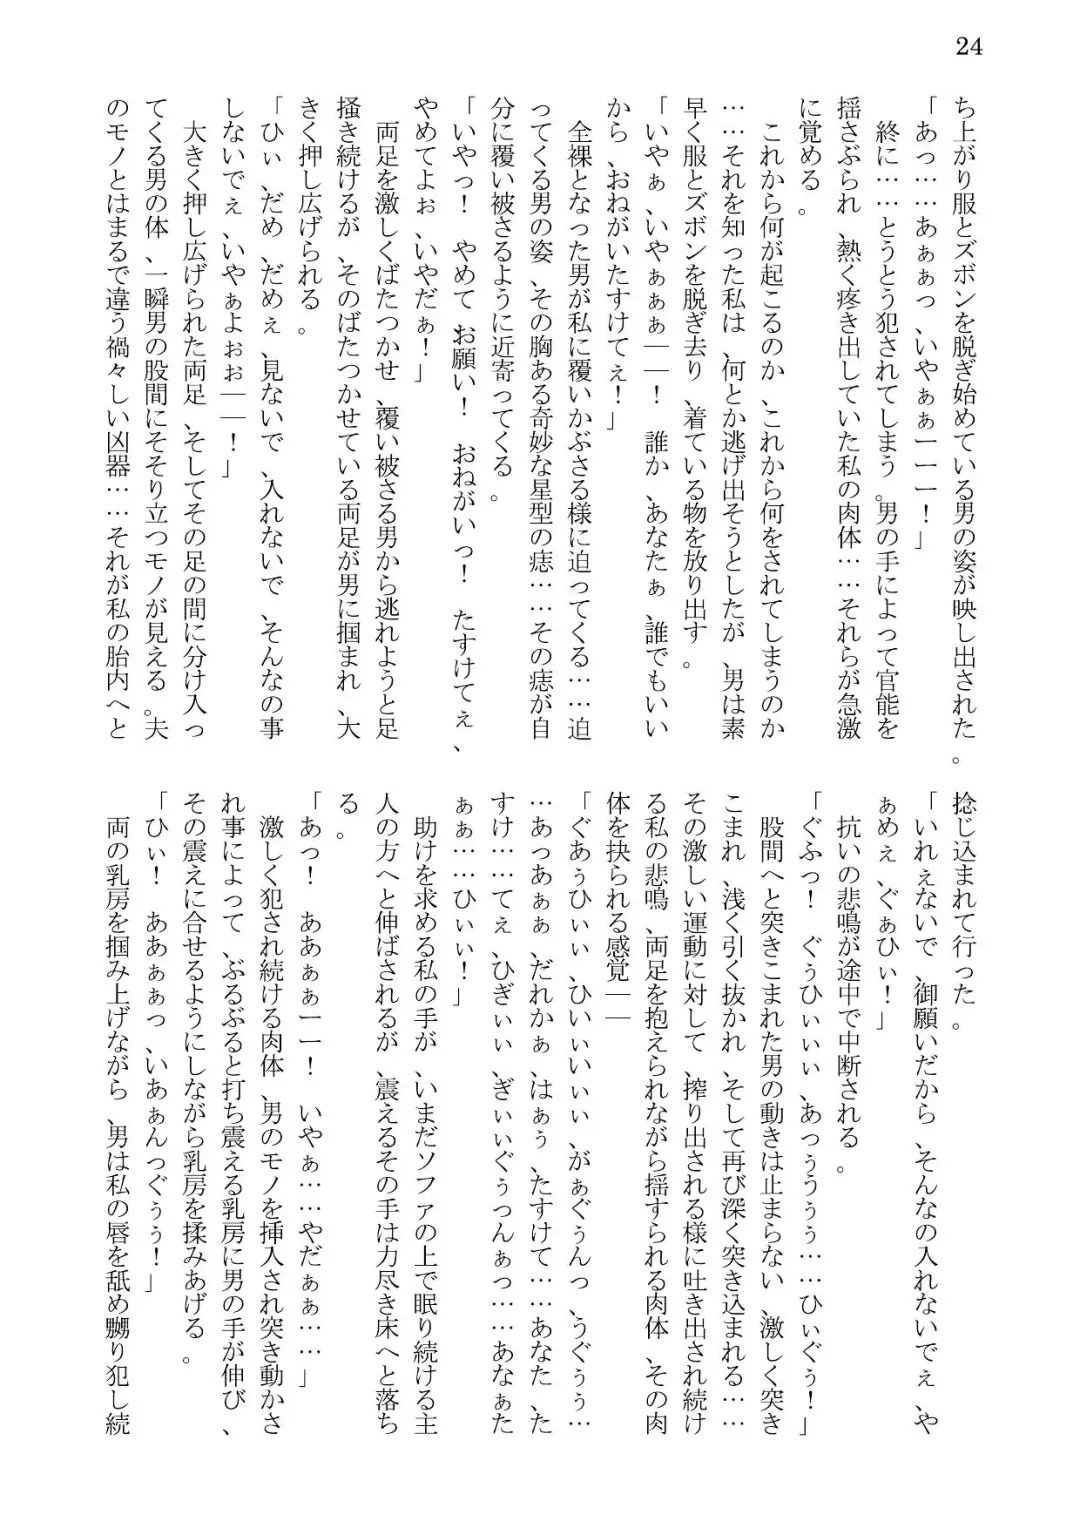 24
ち上がり服とズボンを脱ぎ始めている男の姿が映し出された。
「あっ……あぁぁっ、いやぁぁーーー！」
　終に……とうとう犯されてしまう。男の手によって官能を
揺さぶられ、熱く疼き出していた私の肉体……それらが急激
に覚める。
　これから何が起こるのか、これから何をされてしまうのか
……それを知った私は、何とか逃げ出そうとしたが、男は素
早く服とズボンを脱ぎ去り、着ている物を放り出す。
「いやぁ、いやぁぁぁ――！　誰か、あなたぁ、誰でもいい
から、おねがいたすけてぇ！」
　全裸となった男が私に覆いかぶさる様に迫ってくる……迫
ってくる男の姿、その胸ある奇妙な星型の痣……その痣が自
分に覆い被さるように近寄ってくる。
「いやっ！　やめて、お願い！　おねがいっ！　たすけてぇ、
やめてよぉ、いやだぁ！」
　両足を激しくばたつかせ、覆い被さる男から逃れようと足
掻き続けるが、そのばたつかせている両足が男に掴まれ、大
きく押し広げられる。
「ひぃ、だめ、だめぇ、見ないで、入れないで、そんなの事
しないでぇ、いやぁよぉぉ――！」
　大きく押し広げられた両足、そしてその足の間に分け入っ
てくる男の体、一瞬男の股間にそそり立つモノが見える。夫
のモノとはまるで違う禍々しい凶器……それが私の胎内へと
捻じ込まれて行った。
「いれぇないで、御願いだから、そんなの入れないでぇ、や
ぁめぇ、ぐぁひぃ！」
　抗いの悲鳴が途中で中断される。
「ぐふっ！　ぐぅひぃぃぃ、あっぅうぅぅ……ひぃぐぅ！」
　股間へと突きこまれた男の動きは止まらない、激しく突き
こまれ、浅く引く抜かれ、そして再び深く突き込まれる……
その激しい運動に対して、搾り出される様に吐き出され続け
る私の悲鳴、両足を抱えられながら揺すられる肉体、その肉
体を抉られる感覚――
「ぐあぅひぃぃ、ひいぃいぃぃ、がぁぐぅんっ、うぐぅぅ…
…あっあぁぁ、だれかぁ、はぁぅ、たすけて……あなた、た
すけ……てぇ、ひぎぃぃ、ぎぃぃぐぅっんぁっ……あなぁた
ぁぁ……ひぃぃ！」
　助けを求める私の手が、いまだソファの上で眠り続ける主
人の方へと伸ばされるが、震えるその手は力尽き床へと落ち
る。
「あっ！　ああぁぁーー！　いやぁ……やだぁぁ……」
　激しく犯され続ける肉体、男のモノを挿入され突き動かさ
れ事によって、ぶるぶると打ち震える乳房に男の手が伸び、
その震えに合せるようにしながら乳房を揉みあげる。
「ひぃ！　ああぁぁっ、いあぁんっぐぅぅ！」
　両の乳房を掴み上げながら、男は私の唇を舐め嬲り犯し続